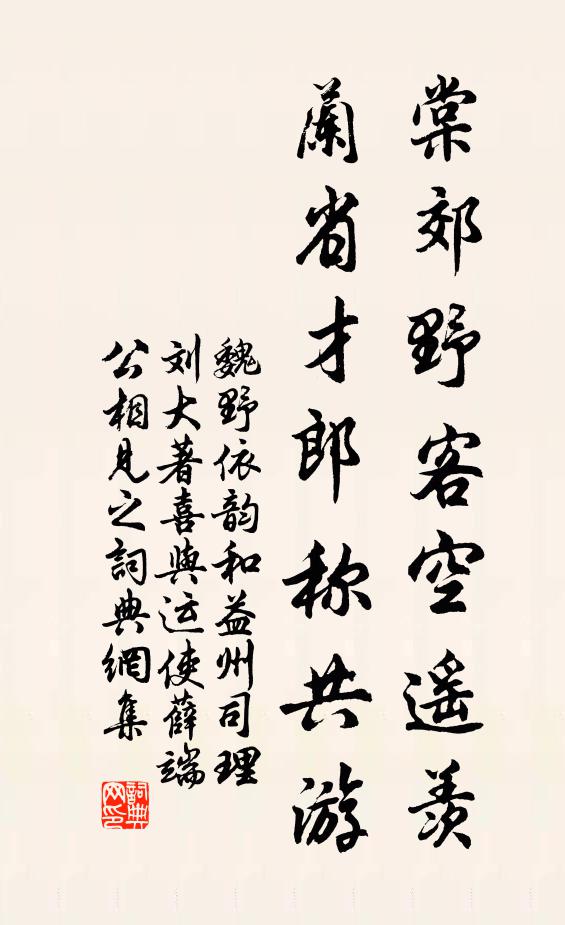 棠郊野客空遥羡
蘭省才郎称共游
魏野依韵和益州司理
刘大著喜與运使薛端
公相見之詞典網集
詞典网印